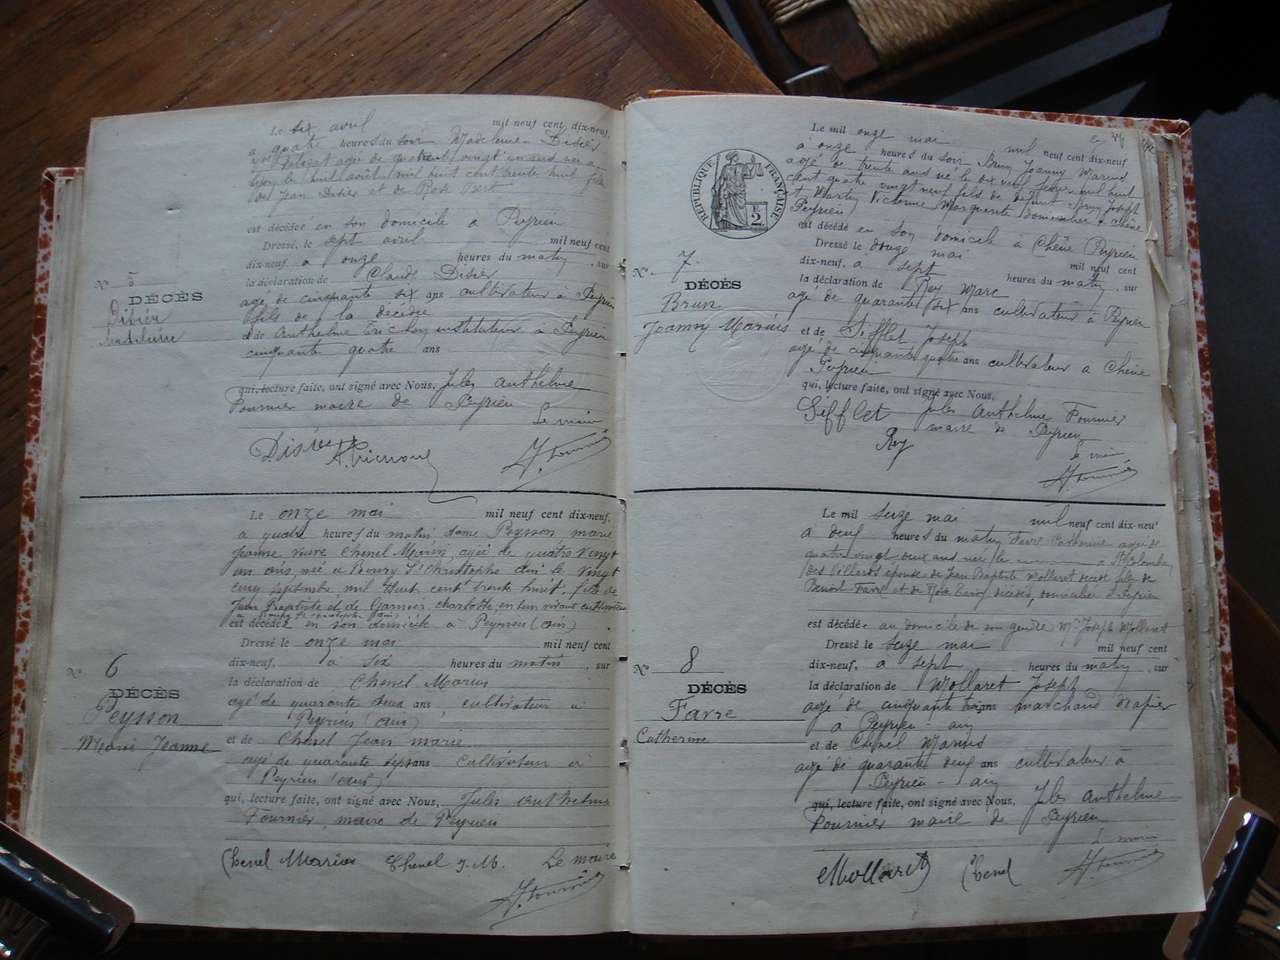 Le six avril mil neuf cent dix-neuf,
a quatre heures du soir Madeleine Didier
agée de quatre vingt un ans née a
le huit août mil huit cent trente huit, fille
de Jean Didier et de
est décédée en son domicile a Peyrieu
Dressé, le sept avril mil neuf cent
dix-neuf, a onze heures du matin, sur
la déclaration de Claude Didier
agé de cinquante six ans cultivateur à Peyrieu
fils de la décédée
et de Anthelme instituteur à Peyrieu
cinquante quatre ans
qui, lecture faite, ont signé avec Nous, Jules Anthelme
Fournier maire de Peyrieu
Le maire
Didier
J. Fournier
N° 5
DÉCÈS
Didier
Madeleine
Le onze mai mil neuf cent dix-neuf,
a quatre heures du matin dame Peysson marie
Jeanne veuve Chenel Marin, agée de quatre vingt
un ans, née a St Christophe ain le vingt
cinq septembre mil huit cent trente huit, fille de
Jean Baptiste et de Garnier charlotte
est décédée en son domicile a Peyrieu (ain)
Dressé le onze mai mil neuf cent
dix-neuf, a six heures du matin, sur
la déclaration de Chenel Marius
agé de quarante deux ans, cultivateur a
Peyrieu (ain)
et de Chenel Jean marie
agé de quarante sept ans cultivateur a
Peyrieu (ain)
qui, lecture faite, ont signé avec Nous, Jules anthelme
Fournier, maire de Peyrieu
Chenel Marius Chenel J. M. Le maire
J. Fournier
N° 6
DÉCÈS
Peysson
Marie Jeanne
Le mil onze mai mil neuf cent dix-neuf
à onze heures du soir Brun Joanny Marius
agé de trente ans né le dix neuf mil huit
cent quatre vingt neuf fils de Brun Joseph
et Martin Victorine Marguerite domicilié à Chêne
Peyrieu
est décédé en son domicile à Chêne Peyrieu
Dressé le douze mai mil neuf cent
dix-neuf, a sept heures du matin, sur
la déclaration de Roy Marc
agé de quarante dix ans cultivateur à Peyrieu
et de Sifflet Joseph
agé de cinquante quatre ans cultivateur a Chêne
Peyrieu
qui, lecture faite, ont signé avec Nous,
Sifflet Jules Anthelme Fournier
Roy maire de Peyrieu
Le maire
J. Fournier
RÉPUBLIQUE FRANÇAISE
2
N° 7
DÉCÈS
Brun
Joanny Marius
Le mil seize mai mil neuf cent dix-neuf
a deux heures du matin Favre Catherine agée de
quatre vingt deux ans née le a St Colomban
des Villards épouse de Jean Baptiste Mollaret décédé fille de
Benoit Favre et de décédés, domiciliée à Peyrieu
est décédée au domicile de son gendre Mr Joseph Mollaret
Dressé le seize mai mil neuf cent
dix-neuf, a sept heures du matin, sur
la déclaration de Mollaret Joseph
agé de cinquante trois ans marchand drapier
a Peyrieu - ain
et de Chenel Marius
agé de quarante deux ans cultivateur à
Peyrieu - ain
qui, lecture faite, ont signé avec Nous, Jules Anthelme
Fournier maire de Peyrieu
Le maire
Mollaret Chenel J. Fournier
N° 8
DÉCÈS
Favre
Catherine